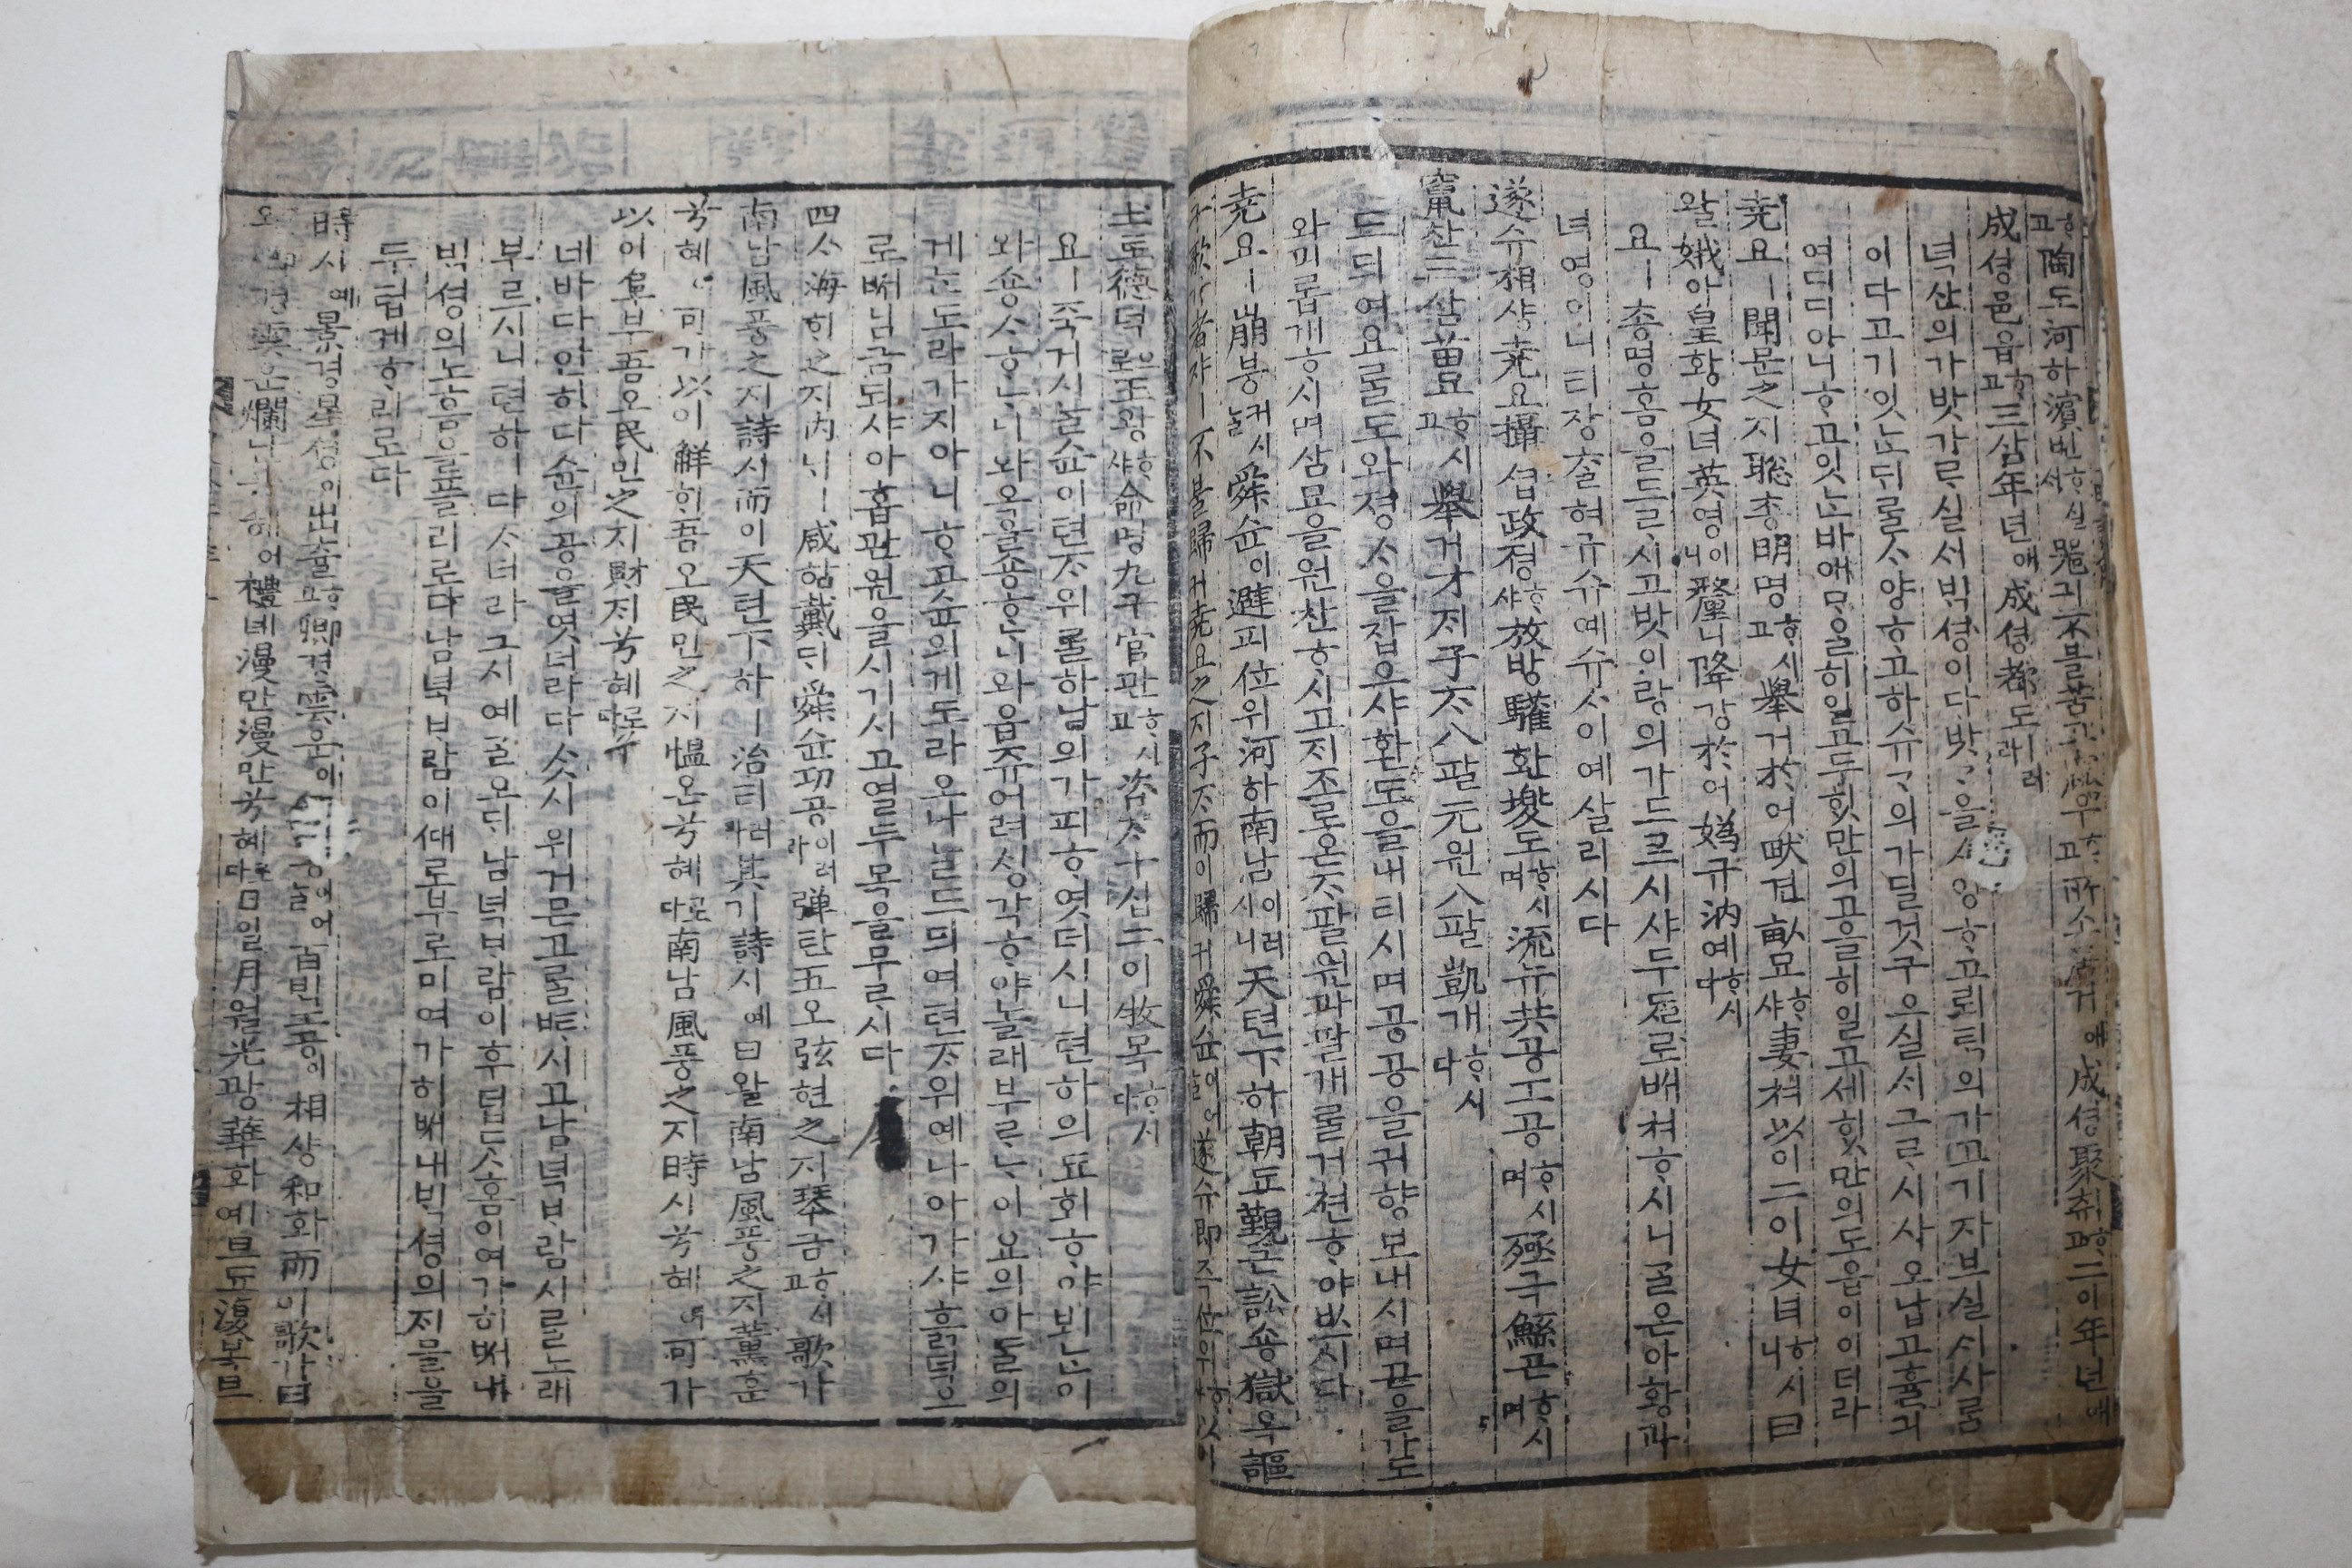 ᄒᆞ고陶도河하濱빈ᄒᆞ실ᄉᆡ器긔不블苦고窳우ᄒᆞ고所소居거애成셩聚ᄎᆔᄒᆞ고二이年년애
成셩邑읍ᄒᆞ고三삼年년애成셩都도ㅣ러래
녁산의가밧가ᄅᆞ실ᄉᆡᄇᆡᆨ셩이다밧ᄀᆞ을ᄉᆞ양ᄒᆞ고뢰ᄐᆡᆨ의가고기자브실ᄉᆡ사ᄅᆞᆷ
이다고기잇ᄂᆞᆫᄃᆡᄅᆞᆯᄉᆞ양ᄒᆞ고하슈ᄀᆞ의가딜것구으실ᄉᆡ그ᄅᆞ시사오납고흘긔
여디디아니ᄒᆞ고잇ᄂᆞᆫ바애ᄆᆞ을히일고두ᄒᆡᆺ만의고을히일고세ᄒᆡᆺ만의도읍이이더라
堯요ㅣ聞문之지聡총明명ᄒᆞ시고擧거於어畎견畝묘ᄒᆞ샤妻쳐以이二이女녀ᄒᆞ시니曰
왈娥아皇황女녀英영이니釐니降강於어嬀규汭예ᄒᆞ시다
요ㅣ총명홈을드ᄅᆞ시고밧이랑의가드르시샤두ᄯᆞᆯ로ᄡᅥ쳐ᄒᆞ시니ᄀᆞᆯ온아황과
녀영이니티장ᄎᆞᆯ혀규슈예슈ᄉᆞ이예살리시다
遂슈相샹堯요攝셥政졍ᄒᆞ샤放방驩환堗도ᄒᆞ시며流뉴共공工공ᄒᆞ시며殛극鯀곤ᄒᆞ시며
竄찬三삼苗묘ᄒᆞ시고擧거才ᄌᆡ子ᄌᆞ八팔元원八팔凱개ᄒᆞ시다
드듸여요ᄅᆞᆯ도와졍ᄉᆞ을잡으샤환도을내티시며공공을귀향보내시며곤을각도
와미롭게ᄒᆞ시며삼묘을원찬ᄒᆞ시고ᄌᆡ조로온ᄌᆞ팔원과팔개ᄅᆞᆯ거쳔ᄒᆞ야ᄡᅳ시다
堯요ㅣ崩붕커시ᄂᆞᆯ舜슌이避피位위河하南남이러시니天텬下하朝됴覲근訟숑獄옥謳
구歌가者쟈ㅣ不블歸귀堯요之지子ᄌᆞ而이歸귀舜슌이어ᄂᆞᆯ遂슈卽즉位위ᄒᆞ샤以이
土토德덕으로王왕ᄒᆞ샤命명九구官관ᄒᆞ시고咨ᄌᆞ十십二이牧목ᄒᆞ시다
요ㅣ죽거시ᄂᆞᆯ슌이텬ᄌᆞ위ᄅᆞᆯ하남의가피ᄒᆞ엿더시니텬하의됴회ᄒᆞ야뵌ᄂᆞ이
와숑ᄉᆞᄒᆞᄂᆞ니와옥을숑ᄒᆞᄂᆞ니와읍쥬어려싱각ᄒᆞ야놀래부ᄅᆞᄂᆞ이요의아ᄃᆞᆯ의
게ᄂᆞᆫ도라가지아니ᄒᆞ고슌의게도라오나ᄂᆞᆯ드듸여텬ᄌᆞ위예나아가샤흙덕으
로ᄡᅥ님금되샤아홉관원을시기시고열두목을무ᄅᆞ시다
四ᄉᆞ海ᄒᆡ之지內ᄂᆡㅣ咸함戴ᄃᆡ舜슌功공이러라彈탄五오弦현之지琴금ᄒᆞ시고歌가
南남風풍之지詩시而이天텬下하ㅣ治티러라其기詩시예曰왈南남風풍之지薰훈
兮혜여可가以이鮮ᄒᆡ吾오民민之지慍온兮혜로다南남風풍之지時시兮혜여可가
以이阜부吾오民민之지財ᄌᆡ兮혜로다
네바다안히다슌의공을엿더라다ᄉᆞᆺ시위거믄고ᄅᆞᆯᄩᆞ시고남녁ᄇᆞ람시를노래
부르시니텬하ㅣ다ᄉᆞ더라그시예ᄀᆞᆯ오ᄃᆡ남녁ᄇᆞ람이후텁ᄃᆞᆺᄒᆞᆷ이여가히ᄡᅥ내
ᄇᆡᆨ셩의노홈을플리로다남녁ᄇᆞ람이ᄣᅢ로부로미여가히ᄡᅥ내ᄇᆡᆨ셩의ᄌᆡ믈을
두럽게ᄒᆞ리로다
時시예景경星셩이出츌ᄒᆞ고卿경雲운이興흥ᄒᆞ여ᄂᆞᆯ百ᄇᆡᆨ工공이相샹和화而이歌가曰
왈卿경雲운爛난兮혜여禮녜漫만漫만兮혜로다日일月월光광華화예旦단復부旦